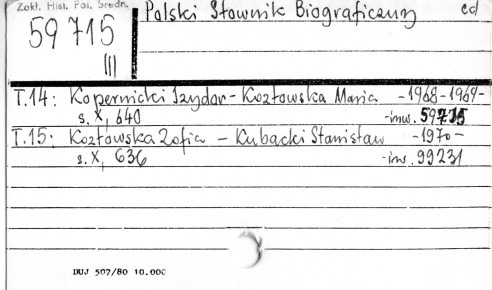 Zakł. Hist. Pol. Średn.
Polski Słownik Biograficzny cd
59 715
III
T.14: Kopernicki Izydor - Kozłowska Maria -1968-1969-
s. X, 640 -inw. 59715
T.15: Kozłowska Zofia - Kubacki Stanisław -1970-
s. X, 636 -inw. 99231
DUJ 507/80 10.000